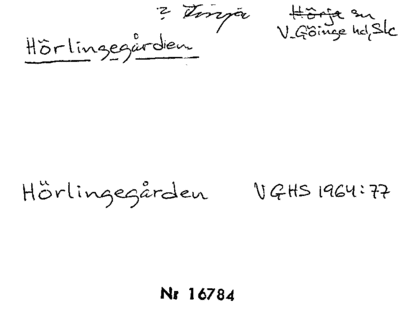 ? Finja Hörja sn
V. Göinge hd, Skc
Hörlingegården
Hörlingegården VGHS 1964:77
Nr 16784